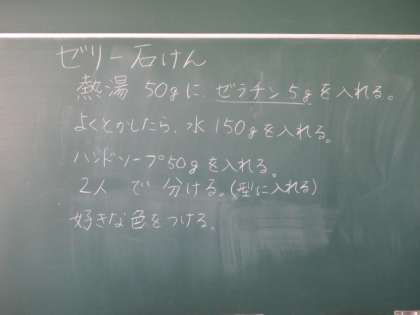 ゼリー石けん
熱湯 50gに、ゼラチン5gを入れる。
よくとかしたら、水150gを入れる。
ハンドソープ50gを入れる。
2人 で 分ける。(型に入れる)
好きな色をつける。